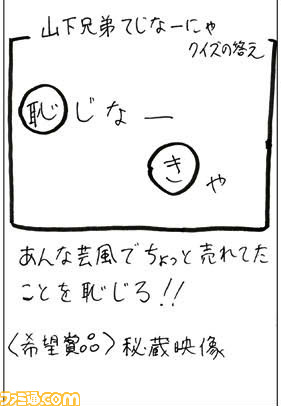 山下兄弟てじなーにゃ
クイズの答え
恥じなー
きゃ
あんな芸風でちょっと売れてた
ことを恥じろ!!
〈希望賞品〉秘蔵映像
ファミ通.com